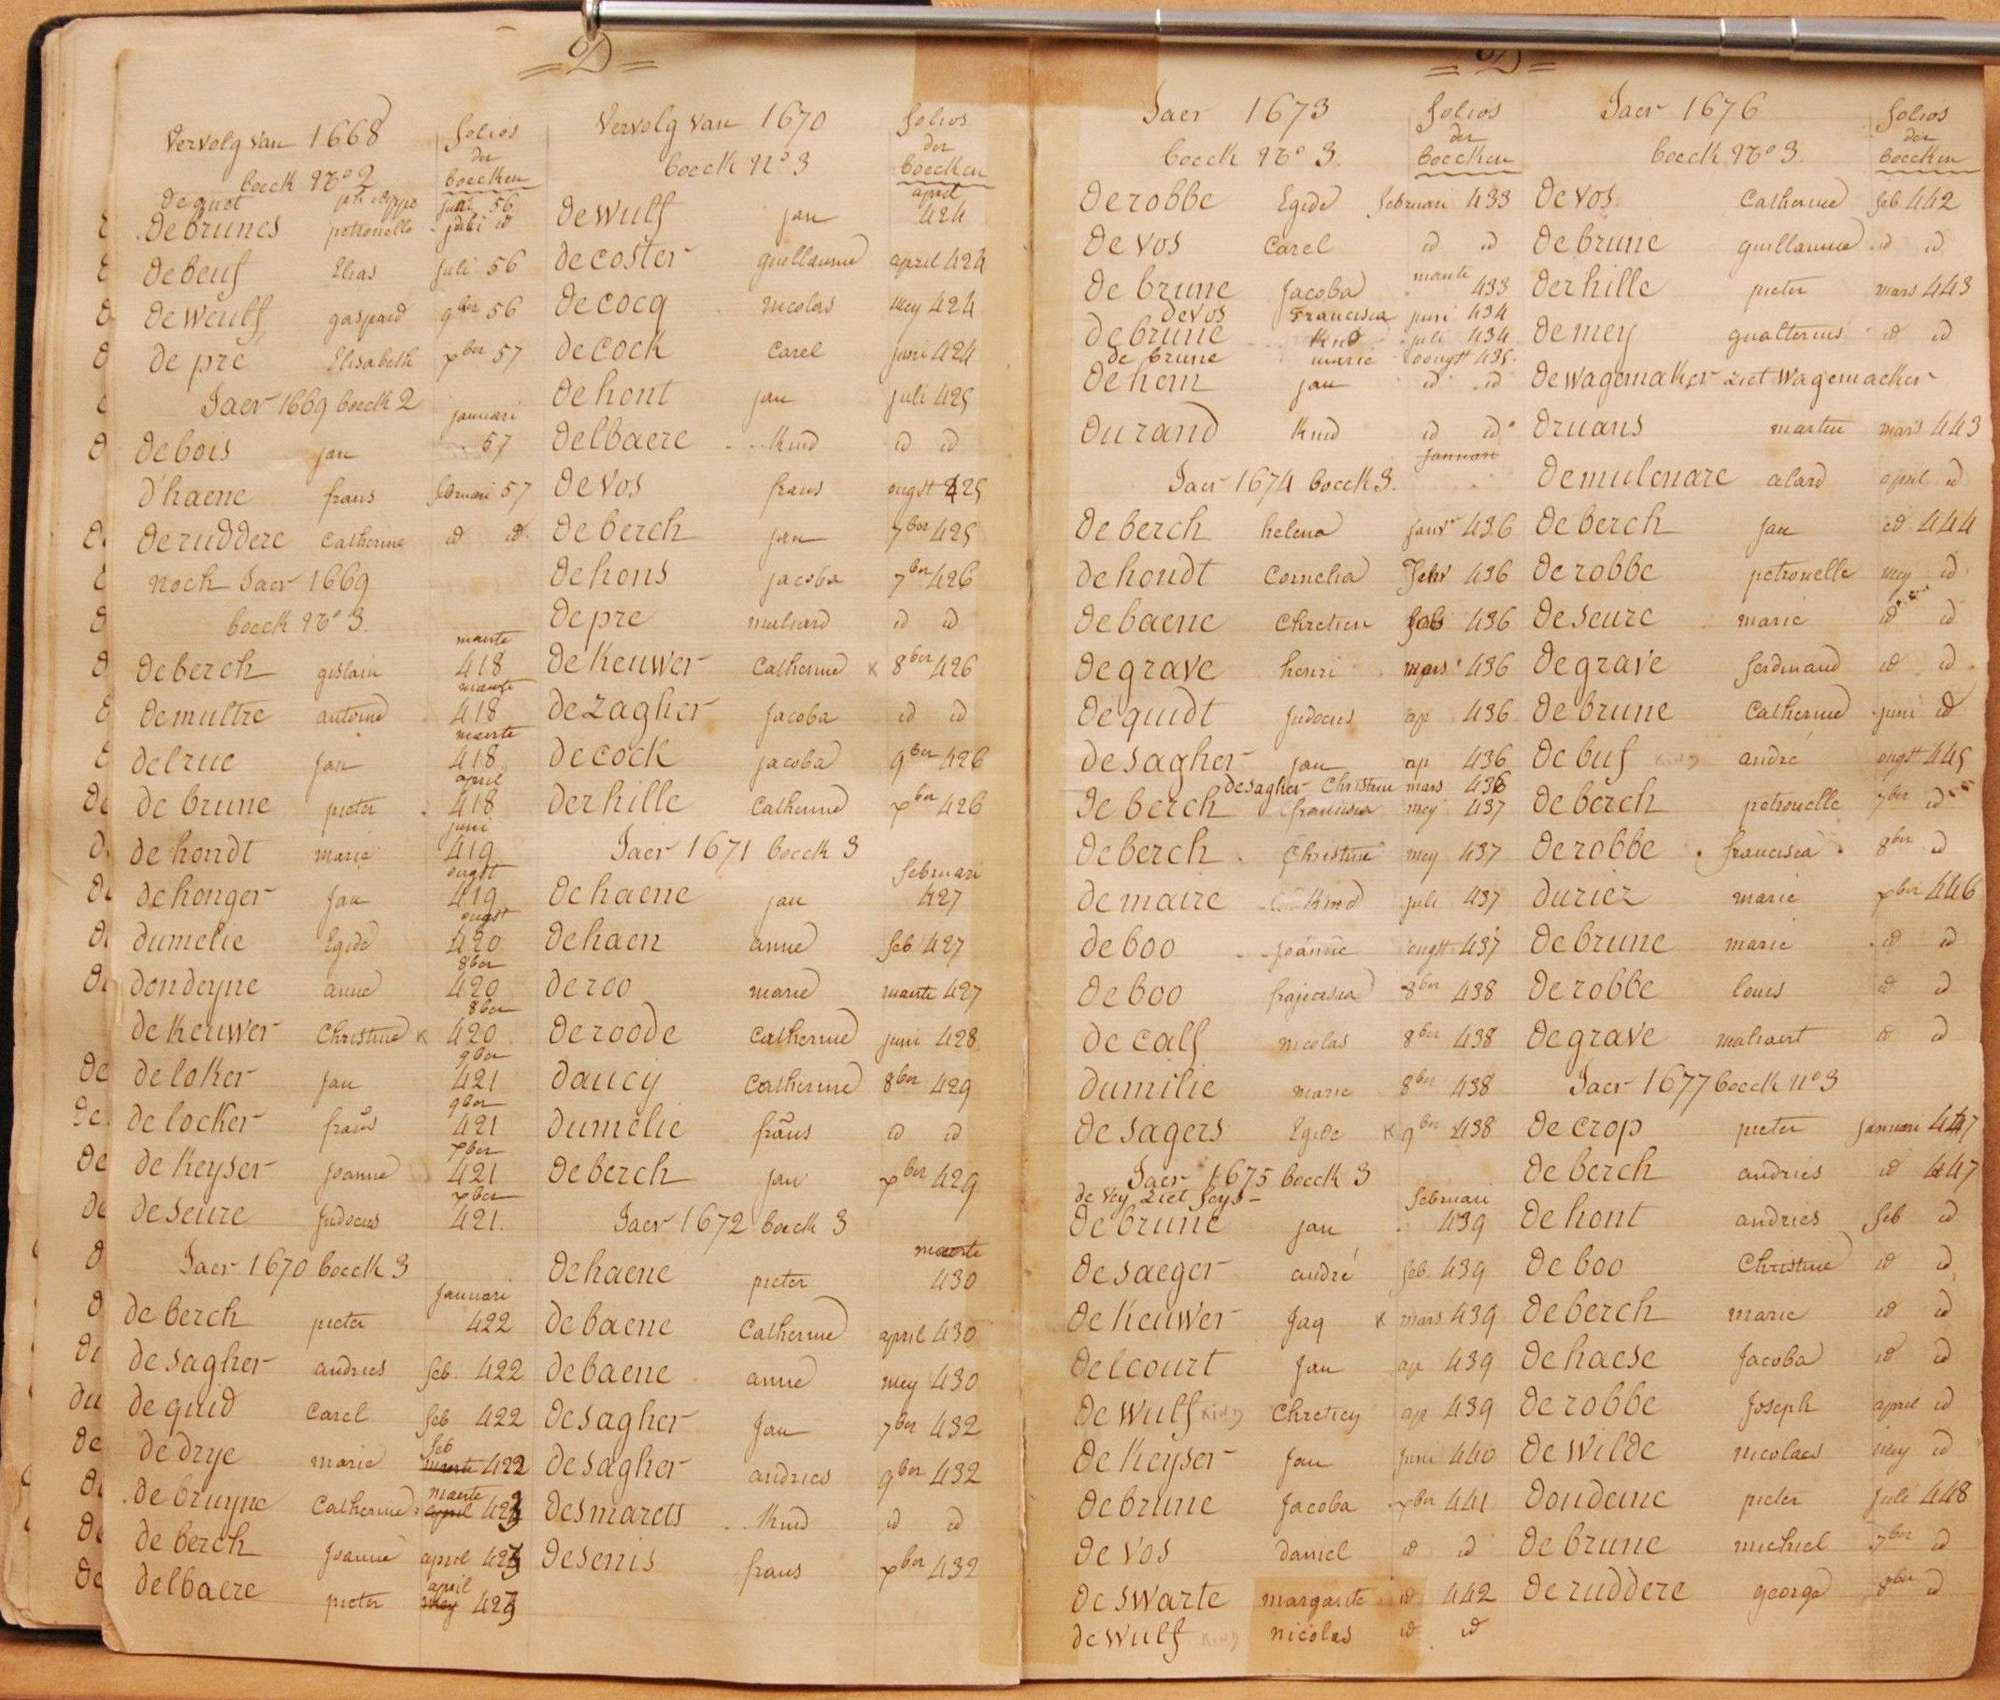 =D=
Vervolg van 1668
boeck No 2
folios
der
boecken
dequet juni 56
debrunes petronelle juli id
debeuf Elias juli 56
deweulf gaspard 9ber 56
depré Elisabeth xber 57
Jaer 1669 boeck 2
debois jan januari 57
d'haene frans februari 57
deruddere Catherine id id
noch Jaer 1669
boeck No 3.
deberch gislain maerte 418
demultre antoine maerte 418
delrue jan maerte 418
de brune pieter april 418
de hondt marie juni 419
dehonger jan ougst 419
dumelie Egide ougst 420
dondeyne anne 8ber 420
dekeuwer Christine x 8ber 420
deloker jan 9ber 421
delocker frans 9ber 421
dekeyser joanne xber 421
deseure judocus xber 421.
Jaer 1670 boeck 3
deberch pieter januari 422
desagher andries feb. 422
dequid Carel feb 422
dedrye marie feb maerte 422
debruyne Catherine maerte april 423
deberch joanne april 423
delbaere pieter april mey 423
Vervolg van 1670
boeck No 3
folios
der
boecken
dewulf jan april 424
decoster guillaume april 424
decocq nicolas mey 424
decock Carel juni 424
dehont jan juli 425
delbaere kind id id
devos frans ougst 425
deberch jan 7ber 425
dehons jacoba 7ber 426
depre maliard id id
dekeuwer Catherine x 8ber 426
dezagher jacoba id id
decock jacoba 9ber 426
derhille Catherine xber 426
Jaer 1671 boeck 3
dehaene jan februari 427
dehaen anne feb 427
deroo marie maerte 427
deroode Catherine juni 428
daucy Catherine 8ber 429
dumelie frans id id
deberch jan xber 429
Jaer 1672 boeck 3
dehaene pieter maerte 430
debaene Catherine april 430
debaene anne mey 430
desagher jan 7ber 432
desagher andries 9ber 432
desmarets kind id id
desenis frans xber 432
=D=
Jaer 1673
boeck No 3.
folios
der
boecken
derobbe Egide februari 433
devos Carel id id
debrune jacoba maerte 433
devos Francisca juni 434
debrune kind juli 434
de brune marie oougst 435.
dehem jan id id
durand kind id id
Jaer 1674 boeck 3. januari
deberch helena janr 436
dehondt Cornelia Febr 436
debaene Chretien feb 436
degrave henri mars 436
dequidt judocus ap 436
desagher jan ap 436
desagher Christine mars 436
deberch francisca mey 437
deberch Christine mey 437
demaire kind juli 437
deboo joanne ougst 437
deboo francisca 8ber 438
decalf nicolas 8ber 438
dumilie marie 8ber 438
desagers Egide x 9ber 438
Jaer 1675 boeck 3
de vey ziet feys-
debrune jan februari 439
desaeger andré feb. 439
dekeuwer jaq x mars 439
delcourt jan ap 439
dewulf kind Chretien ap 439
dekeyser jan juni 440
debrune jacoba xber 441
devos daniel id id
deswarte margarite id 442
dewulf kind nicolas id id
Jaer 1676
boeck No 3.
folios
der
boecken
devos. Catherine feb 442
debrune guillaume id id
derhille pieter mars 443
demey gualterus id id
dewagemaker ziet wagemacker
druans martin mars 443
demulenare alard april id
deberch jan id 444
derobbe petronelle mey id
deseure marie id id
degrave ferdinand id id
debrune Catherine juni id
debuf kind andré ougst 445
deberch petronelle 7ber id
derobbe francisca 8ber id
duriez marie xber 446
debrune marie id id
derobbe louis id id
degrave maliaert id id
Jaer 1677 boeck no 3
decrop pieter januari 447
deberch andries id 447
dehont andries feb id
deboo Christine id id
deberch marie id id
dehaese jacoba id id
derobbe joseph april id
dewilde nicolaes mey id
dondeine pieter juli 448
debrune michiel 7ber id
deruddere george 8ber id